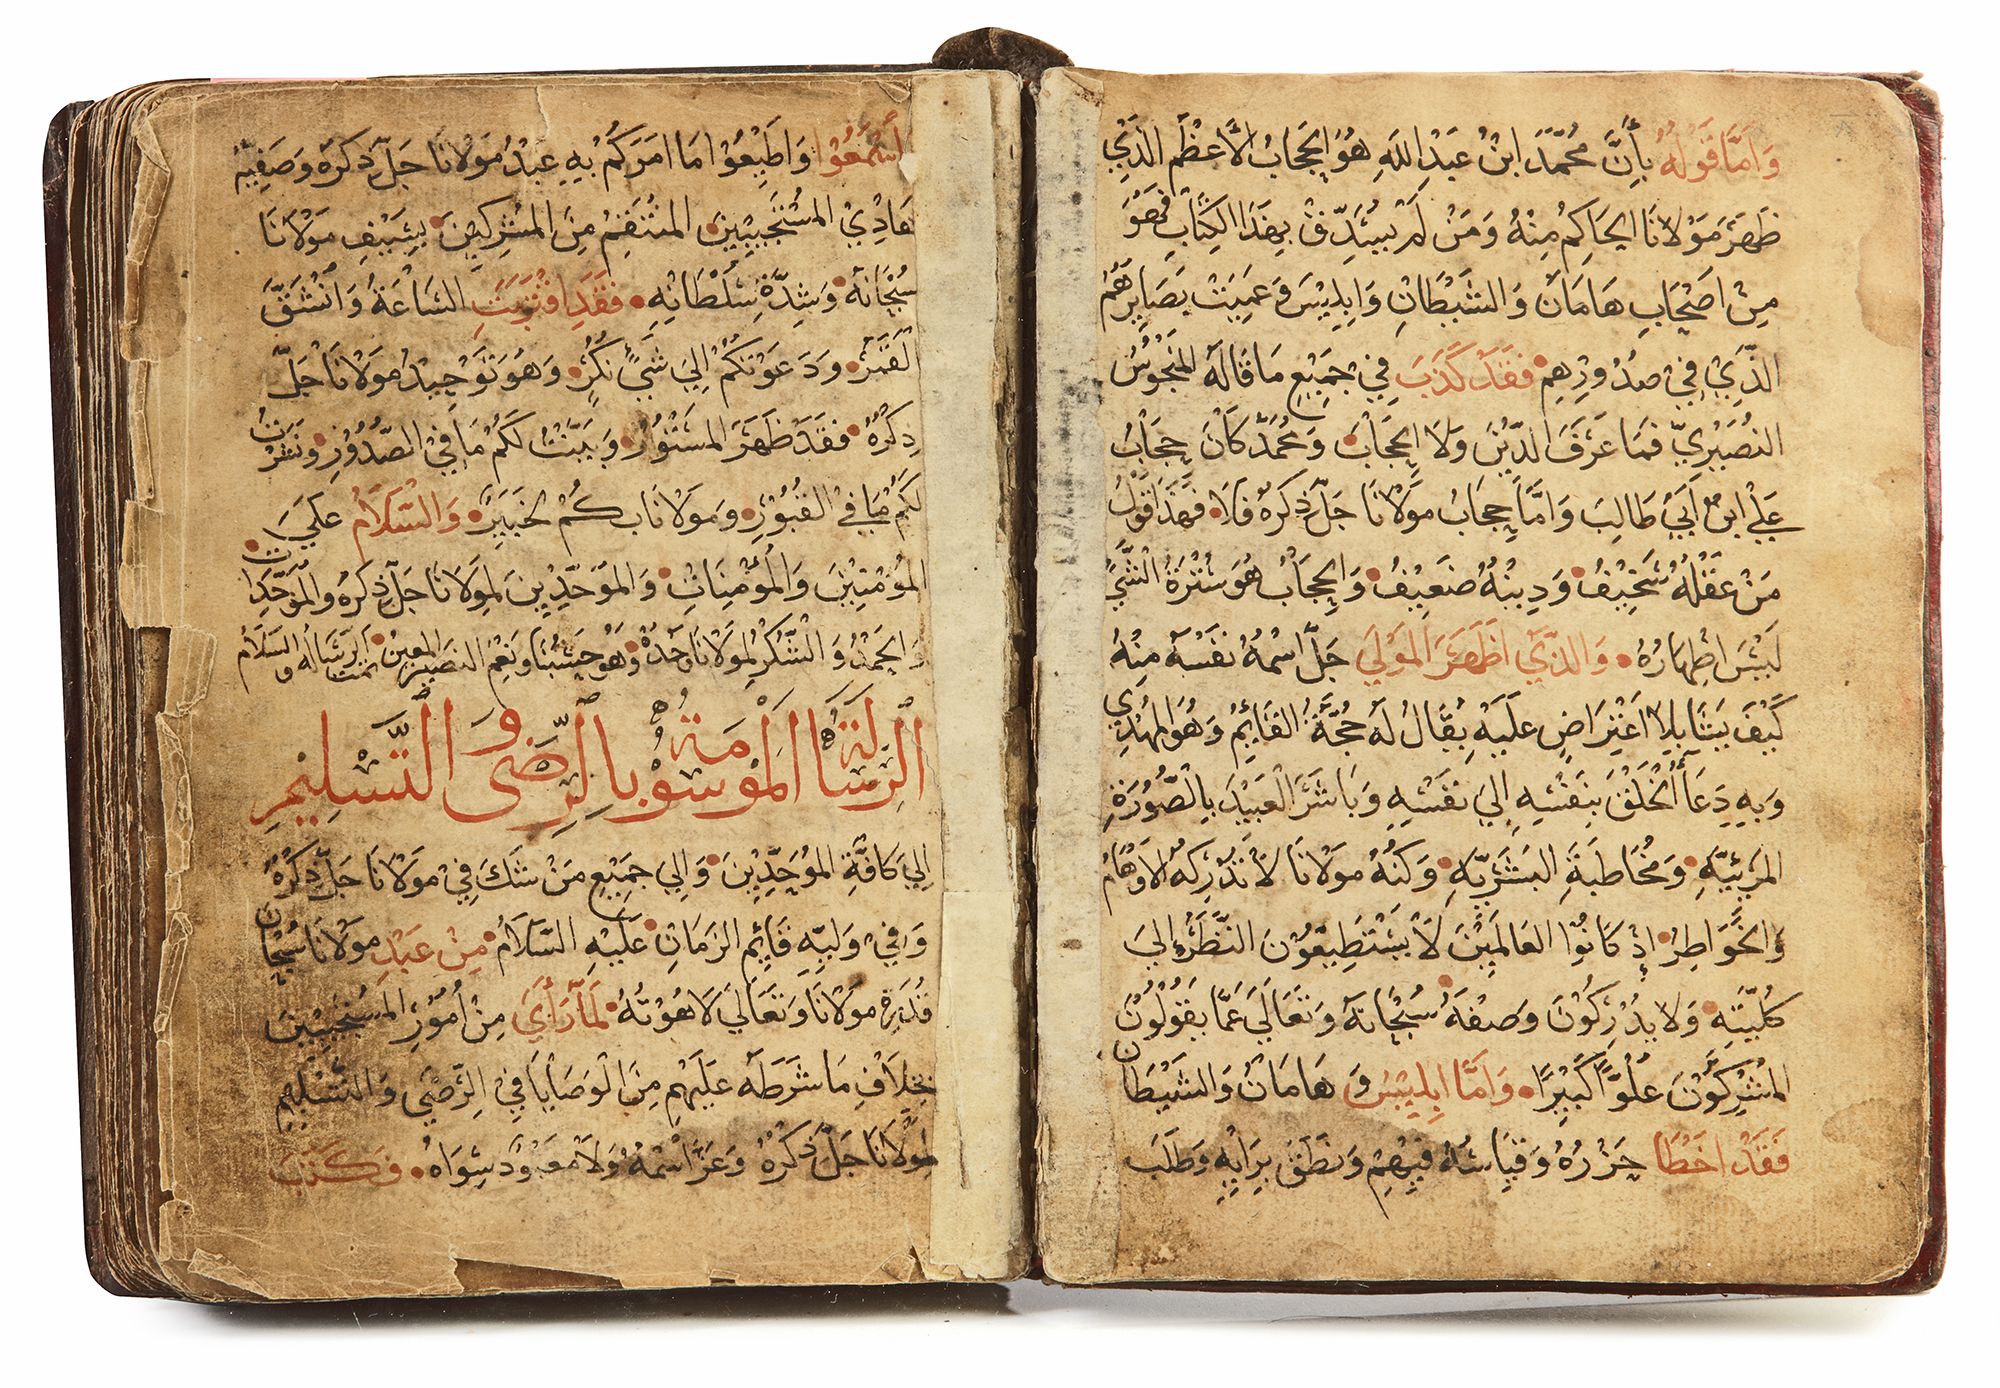 وَاَمَّا قَوْلُهُ بِأَنَّ مُحَمَّدَ ابْنُ عَبْدِ اللهِ هُوَ الحِجَابُ الأَعْظَمُ الَّذِيْ
ظَهَرَ مَوْلَانَا الحَاكِمُ مِنْهُ وَمَنْ لَمْ يُصَدِّقْ بِهَذَا الكِتَابِ فَهُوَ
مِنْ اَصْحَابِ هَامَانْ وَالشَّيْطَانِ وَاِبْلِيْسَ وَعَمِيَتْ بَصَايِرُهُمْ
الَّذِيْ فِيْ صُدُوْرِهِمْ فَقَدْ كَذَبَ فِيْ جَمِيْعِ مَا قَالَهُ المَنْجُوْسُ
النُّصَيْرِيُّ فَمَا عَرَفَ الدِّيْنَ وَلَا الحِجَابَ وَمُحَمَّدْ كَانَ حِجَابُ
عَلِيْ ابْنِ اَبِيْ طَالِبَ وَاَمَّا حِجَابُ مَوْلَانَا جَلَّ ذِكْرُهُ فَلَا فَهَذَا قَوْلُ
مَنْ عَقْلُهُ سَخِيْفُ وَدِيْنُهُ ضَعِيْفُ وَالحِجَابُ هُوَ سُتْرَةُ الشَّيْ
لَيْسَ اِظْهَارُهُ وَالَّذِيْ اَظْهَرَ المَوْلَى جَلَّ اسْمُهُ نَفْسَهُ مِنْهُ
كَيْفَ يَشَا بِلَا اعْتِرَاضٍ عَلَيْهِ يُقَالُ لَهُ حُجَّةُ القَايِمُ وَهُوَ المَهْدِيْ
وَبِهِ دَعَا الْخَلْقَ بِنَفْسِهِ اِلَى نَفْسِهِ وَبَاشَرَ العَبِيْدَ بِالصُّوْرَةِ
المَرْئِيَّهِ وَمُخَاطَبَةَ البَشَرِيَّهِ وَكُنْهُ مَوْلَانَا لَا تُدْرِكُهُ الاَوْهَامُ
وَالخَوَاطِرُ اِذْ كَانُوْا العَالَمِيْنَ لَا يَسْتَطِيْعُوْنَ النَّظَرَ اِلَى
كُلِّيَّتِهِ وَلَا يُدْرِكُوْنَ وَصْفَهُ سُبْحَانَهُ وَتَعَالَى عَمَّا يَقُوْلُوْنَ
المُشْرِكُوْنَ عُلُوًّا كَبِيْرًا وَاَمَّا اِبْلِيْسُ وَ هَامَانْ وَالشَّيْطَانْ
فَقَدْ اَخْطَا حَزْرُهُ وَقِيَاسُهُ فِيْهِمْ وَنَطَقَ بِرَايِهِ وَطَلَبَ
اَسْمَعُوْا وَاَطِيْعُوْا مَا اَمَرَكُمْ بِهِ عَبْدُ مَوْلَانَا جَلَّ ذِكْرُهُ وَصَفِيُّهُ
هَادِيْ المُسْتَجِيْبِيْنَ المُنْتَقِمْ مِنَ المُشْرِكِيْنَ بِسَيْفِ مَوْلَانَا
سُبْحَانَهُ وَشِدَّةِ سُلْطَانِهِ فَقَدِ اقْتَرَبَتِ السَّاعَةُ وَانْشَقَّ
القَمَرْ وَدَعَوْتُكُمْ اِلَى شَيْئٍ نُكُرْ وَهُوَ تَوْحِيْدُ مَوْلَانَا جَلَّ
ذِكْرُهُ فَقَدْ ظَهَرَ المَسْتُوْرُ وَبَيَّنْتُ لَكُمْ مَا فِيْ الصُّدُوْرِ وَنَثَرْتُ
لَكُمْ مَا فِي القُبُوْرِ وَمَوْلَانَا بِكُمْ خَبِيْرٌ وَالسَّلَامُ عَلَى
المُوْمِنِيْنَ وَالْمُؤْمِنَاتْ وَالمُوَحِّدِيْنَ لِمَوْلَانَا جَلَّ ذِكْرُهُ وَالمُوَحِّدَاتْ
وَالحَمْدُ وَالشُّكْرُ لِمَوْلَانَا وَحْدَهُ وَهُوَ حَسْبُنَا وَنِعْمَ النَّصِيْرُ المُعِيْنُ تمت الرِّسَالَه وَالسَّلَامُ
الرِّسَالَةُ المَوْسُوْمَةُ بِالرِّضَى وَالتَّسْلِيْمِ
اِلَى كَافَّةِ المُوَحِّدِيْنَ وَاِلَى جَمِيْعِ مَنْ شَكَ فِيْ مَوْلَانَا جَلَّ ذِكْرُهُ
وَفِيْ وَلِيِّهِ قَايِمِ الزَّمَانِ عَلَيْهِ السَّلَامُ مِنْ عَبْدِ مَوْلَانَا سُبْحَانَ
قُدْرَةِ مَوْلَانَا وَتَعَالَى لَاهُوْتُهُ لَمَّا رَأَيْ مِنْ اُمُوْرِ المُسْتَجِيْبِيْنَ
بِخِلَافِ مَا شَرَطَهُ عَلَيْهِمْ مِنَ الوَصَايَا فِيْ الرِّضَى وَالتَّسْلِيْمِ
لِمَوْلَانَا جَلَّ ذِكْرُهُ وَعَزَّ اسْمُهُ وَلَا مَعْبُوْدَ سِوَاهُ فَكَتَبَ